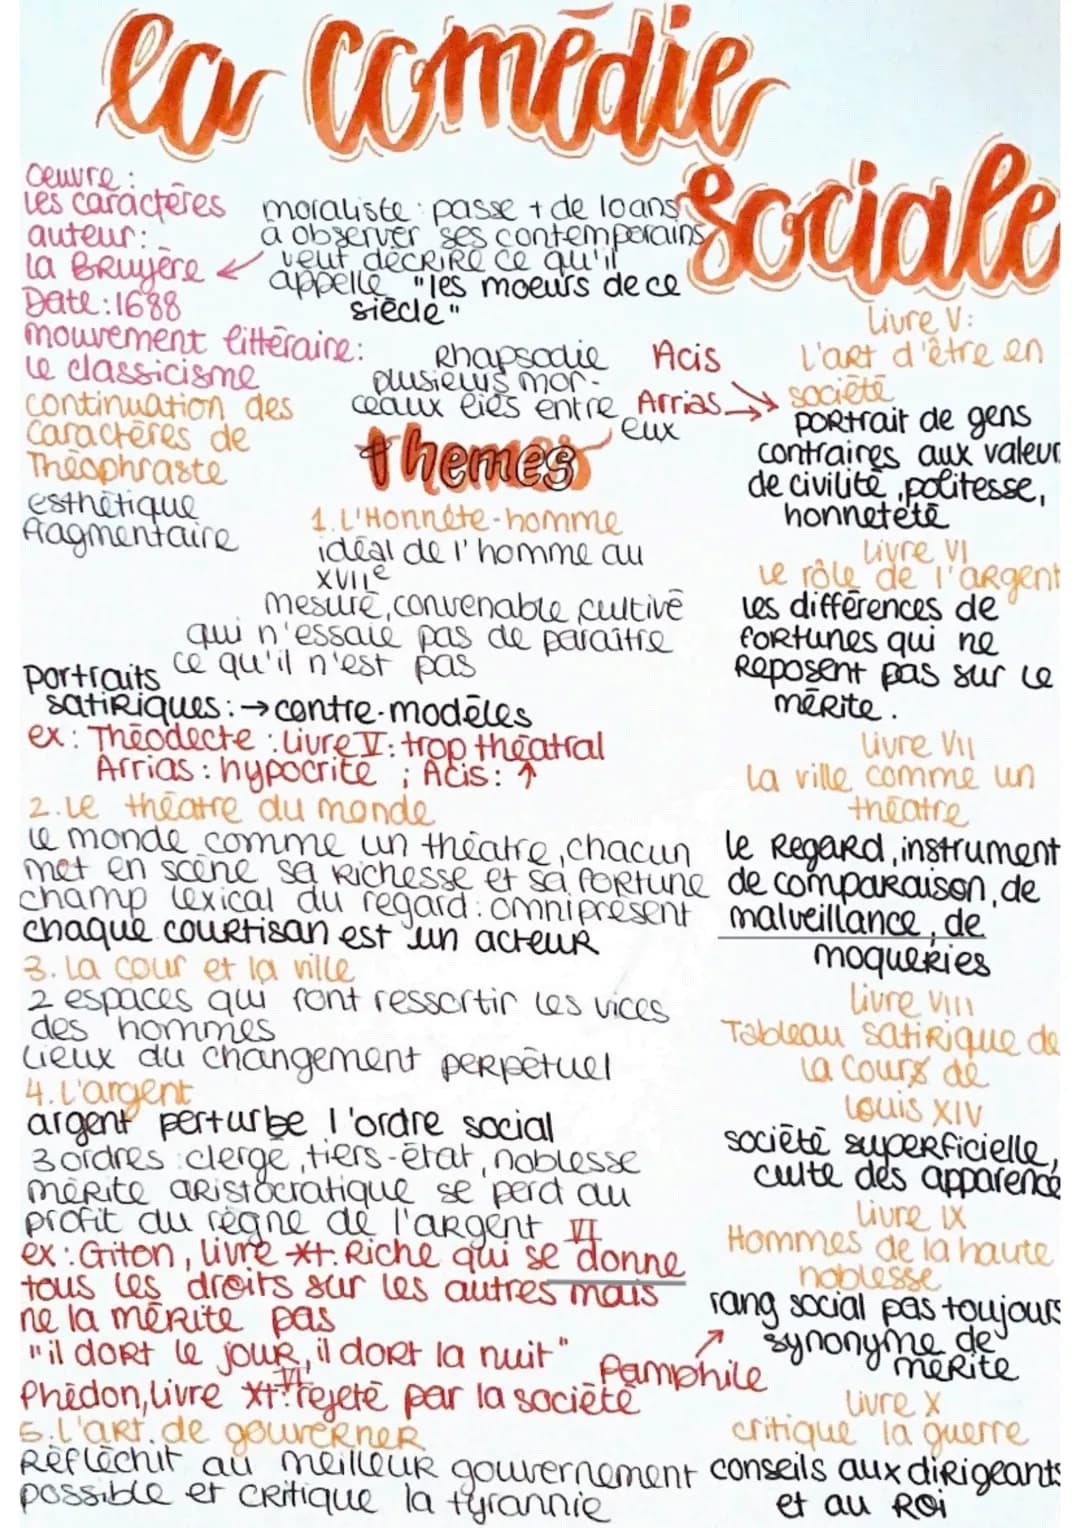 la comédie
sociale
œuvre :
Les caractères
auteur :
La Bruyère
Date : 1688
mouvement littéraire :
le classicisme
continuation des
caractères de
Théophraste
esthétique
fragmentaire
moraliste : passe + de 10ans
à observer ses contemporains
veut décrire ce qu'il
appelle "les moeurs de ce
siècle"
Rhapsodie
plusieurs mor-
ceaux liés entre
eux
Acis
Arrias
themes
1. L'Honnête-homme
idéal de l'homme au
XVIIe
mesuré, convenable, cultivé
qui n'essaie pas de paraitre
ce qu'il n'est pas
portraits
satiriques : → contre-modèles
ex : Théodecte : Livre V : trop théatral
Arrias : hypocrite ; Acis : ↑
2. Le théatre du monde
le monde comme un théatre, chacun
met en scène sa richesse et sa fortune
champ lexical du regard : omniprésent
chaque courtisan est un acteur
3. La cour et la ville
2 espaces qui font ressortir les vices
des hommes
Lieux du changement perpétuel
4. L'argent
argent perturbe l'ordre social
3 ordres : clergé, tiers-état, noblesse
mérite aristocratique se perd au
profit du règne de l'argent
ex : Giton, livre VI : Riche qui se donne
tous les droits sur les autres mais
ne la mérite pas
"il dort le jour, il dort la nuit"
Phédon, livre VI : rejeté par la société
5. L'art de gouverner
Réfléchit au meilleur gouvernement
possible et critique la tyrannie
Livre V :
L'art d'être en
société
portrait de gens
contraires aux valeur
de civilité, politesse,
honneteté
Livre VI
Le rôle de l'argent
Les différences de
fortunes qui ne
Reposent pas sur le
mérite.
Livre VII
La ville comme un
théatre
le Regard, instrument
de comparaison, de
malveillance, de
moqueries
Livre VIII
Tableau satirique de
La Cour de
Louis XIV
société superficielle,
culte des apparence
Livre IX
Hommes de la haute
noblesse
rang social pas toujours
synonyme de
mérite
Pamphile
Livre X
critique la guerre
conseils aux dirigeants
et au Roi